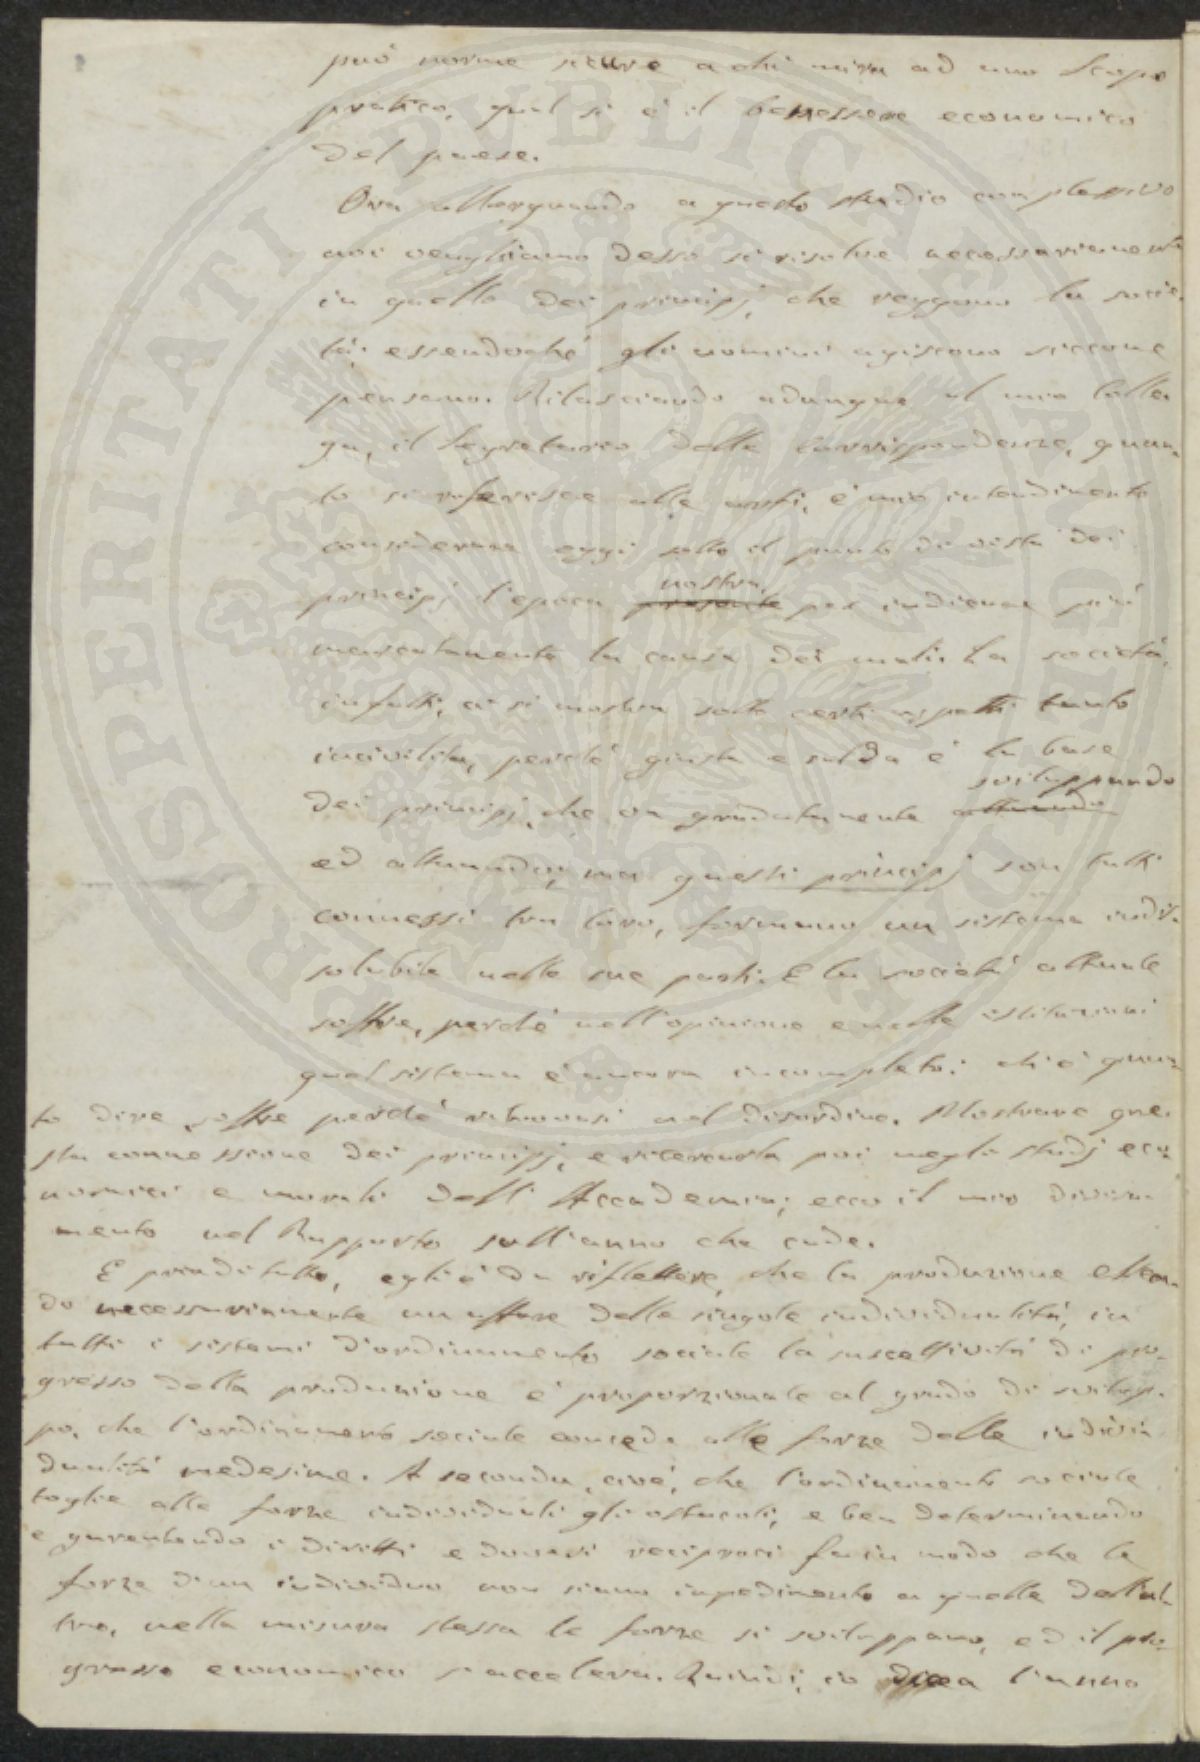 può norme sicure a chi mira ad uno scopo
pratico, qual si è il benessere economico
del paese.
Ora allargando a questo studio complessivo
noi vogliamo desso si risolve necessariamente
in quello dei principj, che reggono la socie-
tà; essendoché gli uomini agiscono siccome
pensano. Rilasciando adunque al mio Colle-
ga, il Segretario delle Corrispondenze, quan-
to si riferisce alle arti, è mio intendimento
considerare oggi sotto il punto di vista dei
principj l'epoca presente nostra, per indicar più
marcatamente la causa dei mali. La società,
infatti, ci si mostra sotto certi aspetti tanto
incivilita, perché giusta e salda è la base
dei principj, che va gradatamente attuando sviluppando
ed attuando; ma questi principj son tutti
connessi tra loro, formano un sistema indis-
solubile nelle sue parti. E la società attuale
soffre, perché nell'opinione e nelle istituzioni
quel sistema è ancora incompleto: ch'è quan-
to dire soffre perché ritrovasi nel disordine. Mostrare que-
sta connessione dei principj, e ricercarla poi negli studj eco-
nomici e morali dell'Accademia; ecco il mio divisa-
mento nel Rapporto sull'anno che cade.
E prima di tutto, egli è da riflettere, che la produzione essen-
do necessariamente un affare delle singole individualità, in
tutti i sistemi d'ordinamento sociale la suscettività di pro-
gresso della produzione è proporzionale al grado di svilup-
po, che l'ordinamento sociale concede alle forze delle individ-
dualità medesime. A seconda, cioè, che l'ordinamento sociale
toglie alle forze individuali gli ostacoli, e ben determinando
e garantendo i diritti e doveri reciproci fa in modo che le
forze d'un individuo non siano impedimento a quelle dell'al-
tro, nella misura stessa le forze si sviluppano, ed il pro-
gresso economico s'accelera. Quindi, io dicea l'anno